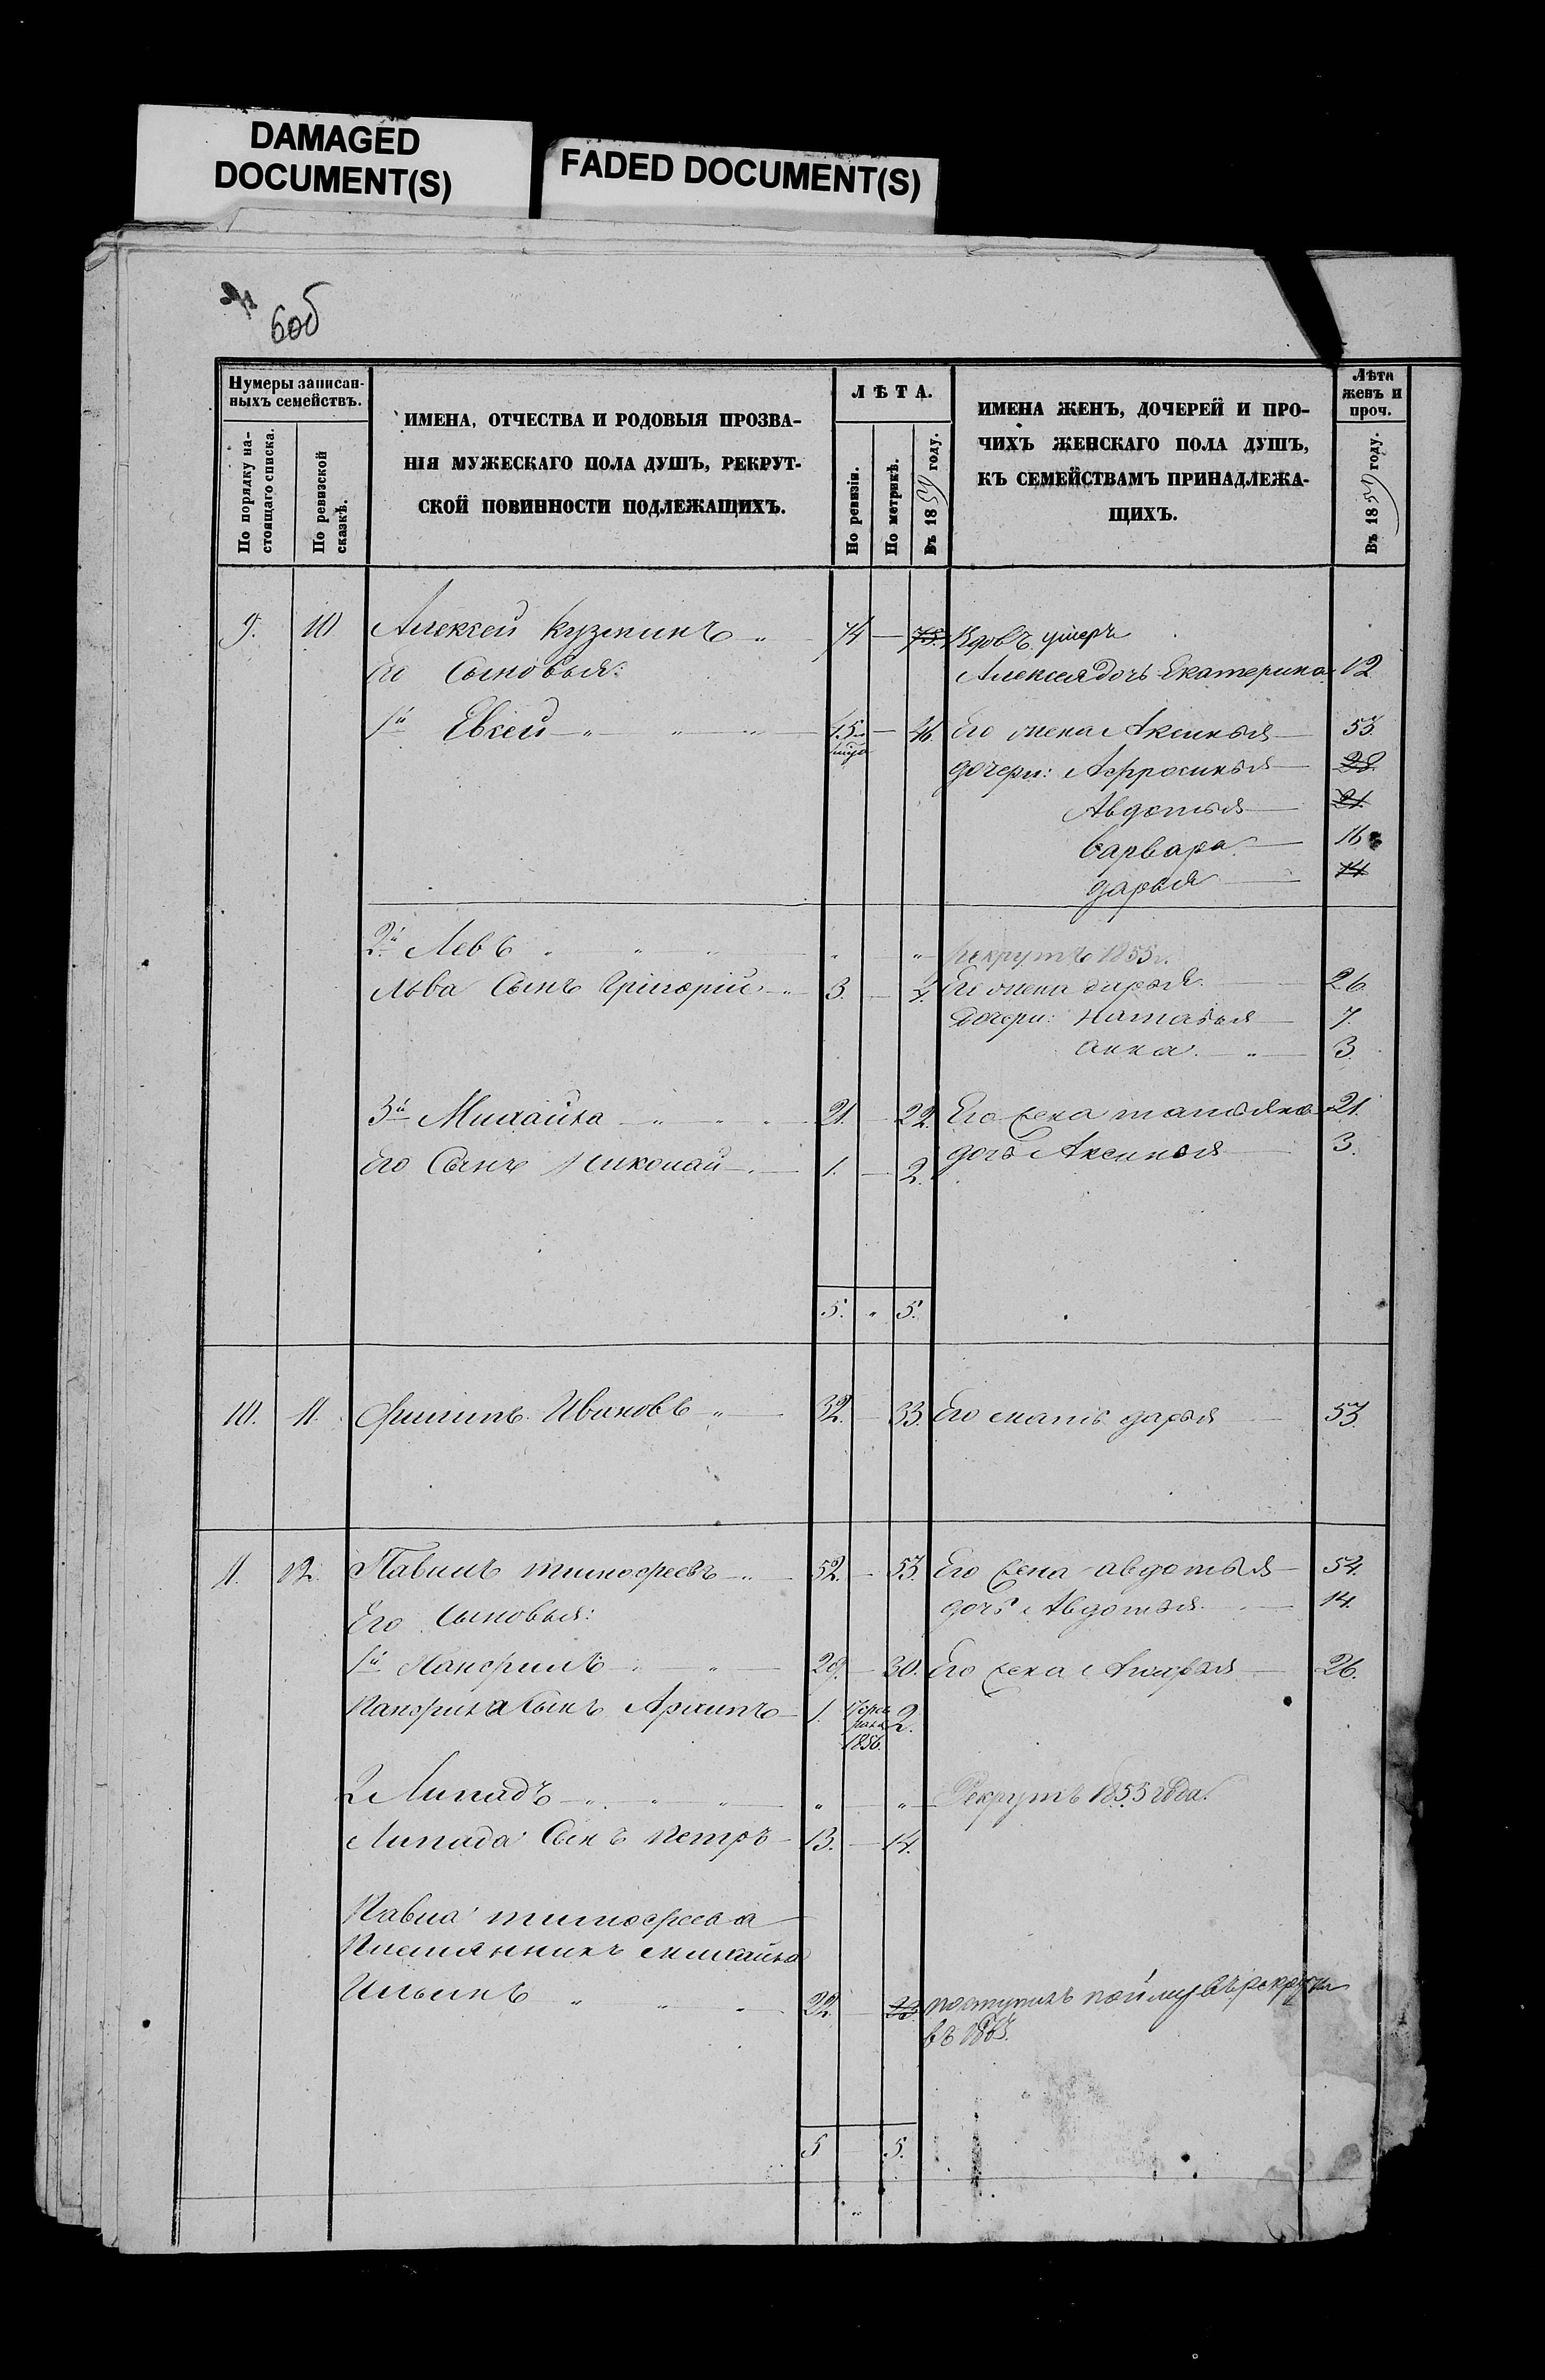 DAMAGED
DOCUMENT(S)
FADED DOCUMENT(S)
6об
Нумеры записан-
ныхъ семействъ.
По порядку на-
стоящаго списка.
По ревизской
сказкѣ.
ИМЕНА, ОТЧЕСТВА И РОДОВЫЯ ПРОЗВА-
НІЯ МУЖЕСКАГО ПОЛА ДУШЪ, РЕКРУТ-
СКОЙ ПОВИННОСТИ ПОДЛЕЖАЩИХЪ.
ЛѢТА.
По ревизіи.
По метрикѣ.
Въ 1859 году.
ИМЕНА ЖЕНЪ, ДОЧЕРЕЙ И ПРО-
ЧИХЪ ЖЕНСКАГО ПОЛА ДУШЪ,
КЪ СЕМЕЙСТВАМЪ ПРИНАДЛЕЖА-
ЩИХЪ.
Лѣта
женъ и
проч.
Въ 1859 году.
9. 10 Алексей Кузминъ 74 — 75. Вдовъ умеръ
Его Сыновья: Алексея дочь Екатерина 12
1й Евсей 45 — 46. Его жена Аксинья 53.
дочери: Афросинья 28.
Авдотья 21.
Варвара 16
дарья 14
2й Левъ рекрутъ 1855 г.
Льва Сынъ Григорій 3. — 4. Его жена дарья 26.
дочери: Наталья 7.
Анна 3.
3й Михайла 21. — 22. Его жена татьяна 21.
Его Сынъ Николай 1. — 2. дочь Аксинья 3.
5. " 5.
10. 11. Филипъ Ивановъ 32. — 33. Его мать дарья 53.
11. 12. Павилъ тимофеевъ 52. — 53. Его жена авдотья 54.
Его Сыновья: дочь Авдотья 14.
1й Панфилъ 29. — 30. Его жена 26.
Панфила Сынъ Архипъ 1. 1856. 2.
2 Липадъ Рекрутъ 1855 года.
Липада Сынъ Петръ 13. — 14.
Павла тимофеева
Племянникъ михайла
Ильинъ 22. — 23. поступилъ въ рекруты
въ
5 5.